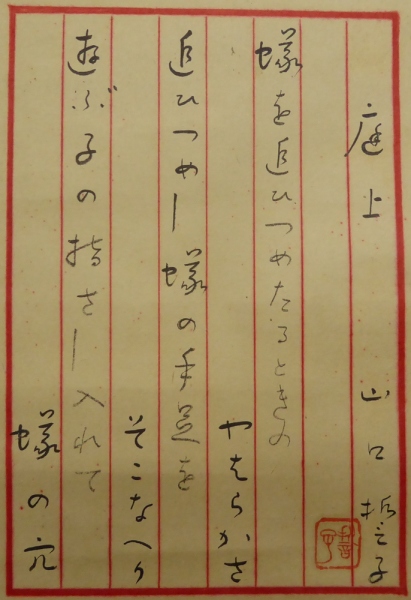 庭上　山口誓子
蟻を追ひつめたるときの
やはらかさ
追ひつめし蟻の手足を
そこなへり
遊ぶ子の指さし入れて
蟻の穴